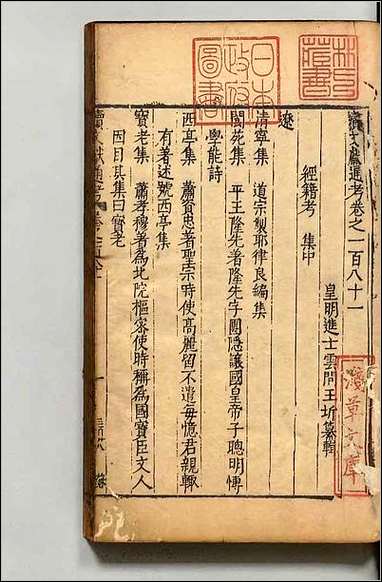 續文獻通考卷之一百八十一
皇明進士雲間王圻纂輯
經籍考 集中
遼
清寧集 道宗製耶律良編集
閬苑集 平王隆先著隆先字團隱讓國皇帝子聰明博
學能詩
西亭集 蕭資忠著聖宗時使高麗留不遣每憶君親輒
有著述號西亭集
寶老集 蕭孝穆著為北院樞密使時稱為國寶臣文人
因目其集曰寶老
續文獻通考
日本
政府
圖書
淺草文庫